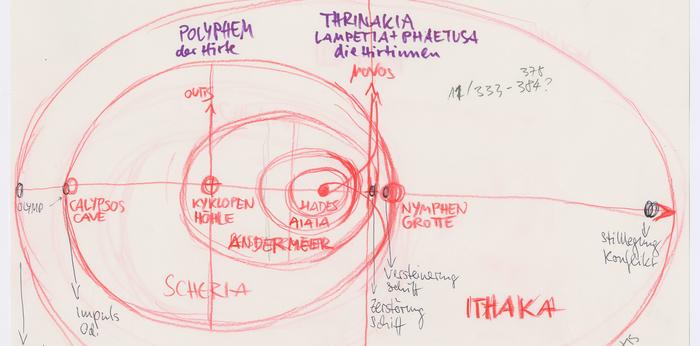 POLYPHEM
der Hirte
THRINAKIA
LAMPETIA + PHAETUSA
die Hirtinnen
MONOS
OUTIS
378
11/333-384?
OLYMP
CALYPSOS
CAVE
KYKLOPEN
HÖHLE
HADES
AIAIA
ANDERMEER
NYMPHEN
GROTTE
SCHERIA
Impuls
Od.
Versteinerung
Schiff
Zerstörung
Schiff
ITHAKA
Stilllegung
Konflikt